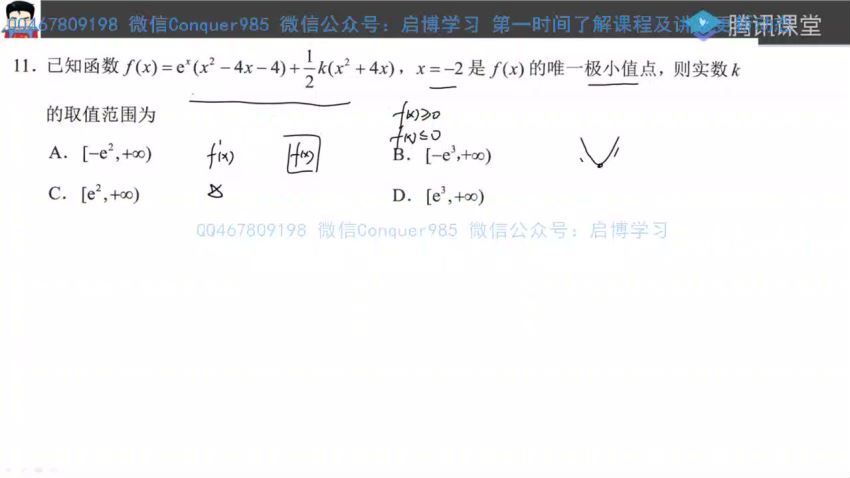 QQ467809198 微信Conquer985 微信公众号：启博学习 第一时间了解课程及讲
腾讯课堂
11．已知函数 f(x) = e^x(x² − 4x − 4) + 1/2 k(x² + 4x)，x = −2 是 f(x) 的唯一极小值点，则实数 k
的取值范围为
f(x)≥0
f(x)≤0
A．[−e²,+∞) f'(x) f(x) B．[−e³,+∞)
C．[e²,+∞) D．[e³,+∞)
QQ467809198 微信Conquer985 微信公众号：启博学习